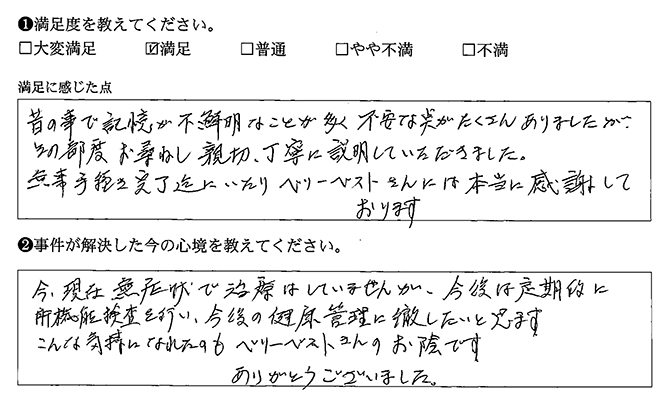 ❶満足度を教えてください。
□大変満足 ☑満足 □普通 □やや不満 □不満
満足に感じた点
昔の事で記憶が不鮮明なことが多く不安な点がたくさんありましたが、
その都度お尋ねし親切、丁寧に説明していただきました。
無事手続き完了迄にいたりベリーベストさんには本当に感謝して
おります
❷事件が解決した今の心境を教えてください。
今、現在無症状で治療はしていませんが、今後は定期的に
肝機能検査を行い、今後の健康管理に徹したいと思います
こんな気持になれたのもベリーベストさんのお陰です
ありがとうございました。